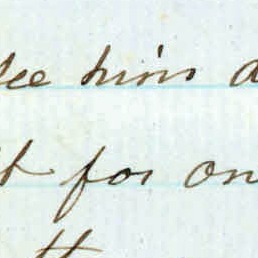 see him a
t for on
th